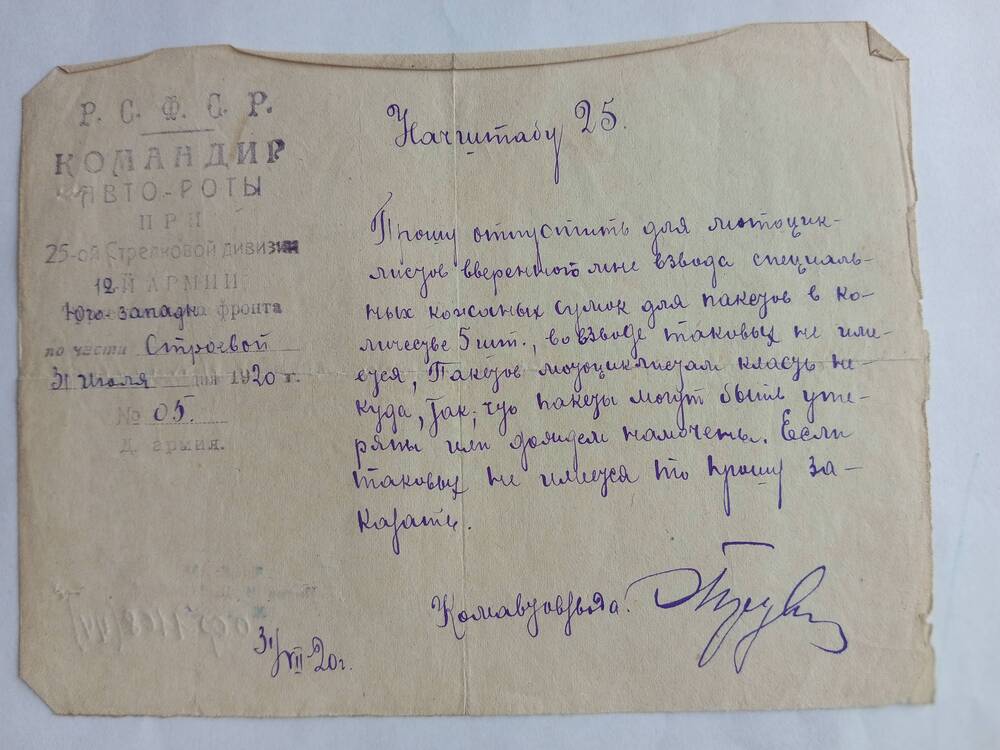 Р. С. Ф. С. Р.
КОМАНДИР
АВТО-РОТЫ
ПРИ
25-ой Стрелковой дивизии
12-Й АРМИИ
Юго-западн фронта
по части Строевой
31 Июля дня 1920 г.
№ 05.
Д. армия.
Начштабу 25.
Прошу отпустить для мотоцик-
листов вверенного мне взвода специаль-
ных кожаных сумок для пакетов в ко-
личестве 5 шт., во взводе таковых не име-
ется, Пакетов мотоциклистам класть не-
куда, так, что пакеты могут быть уте-
ряты или дождем намочены. Если
таковых не имеется то прошу за-
казать.
Комавтовзвода.
31/VII-20г.